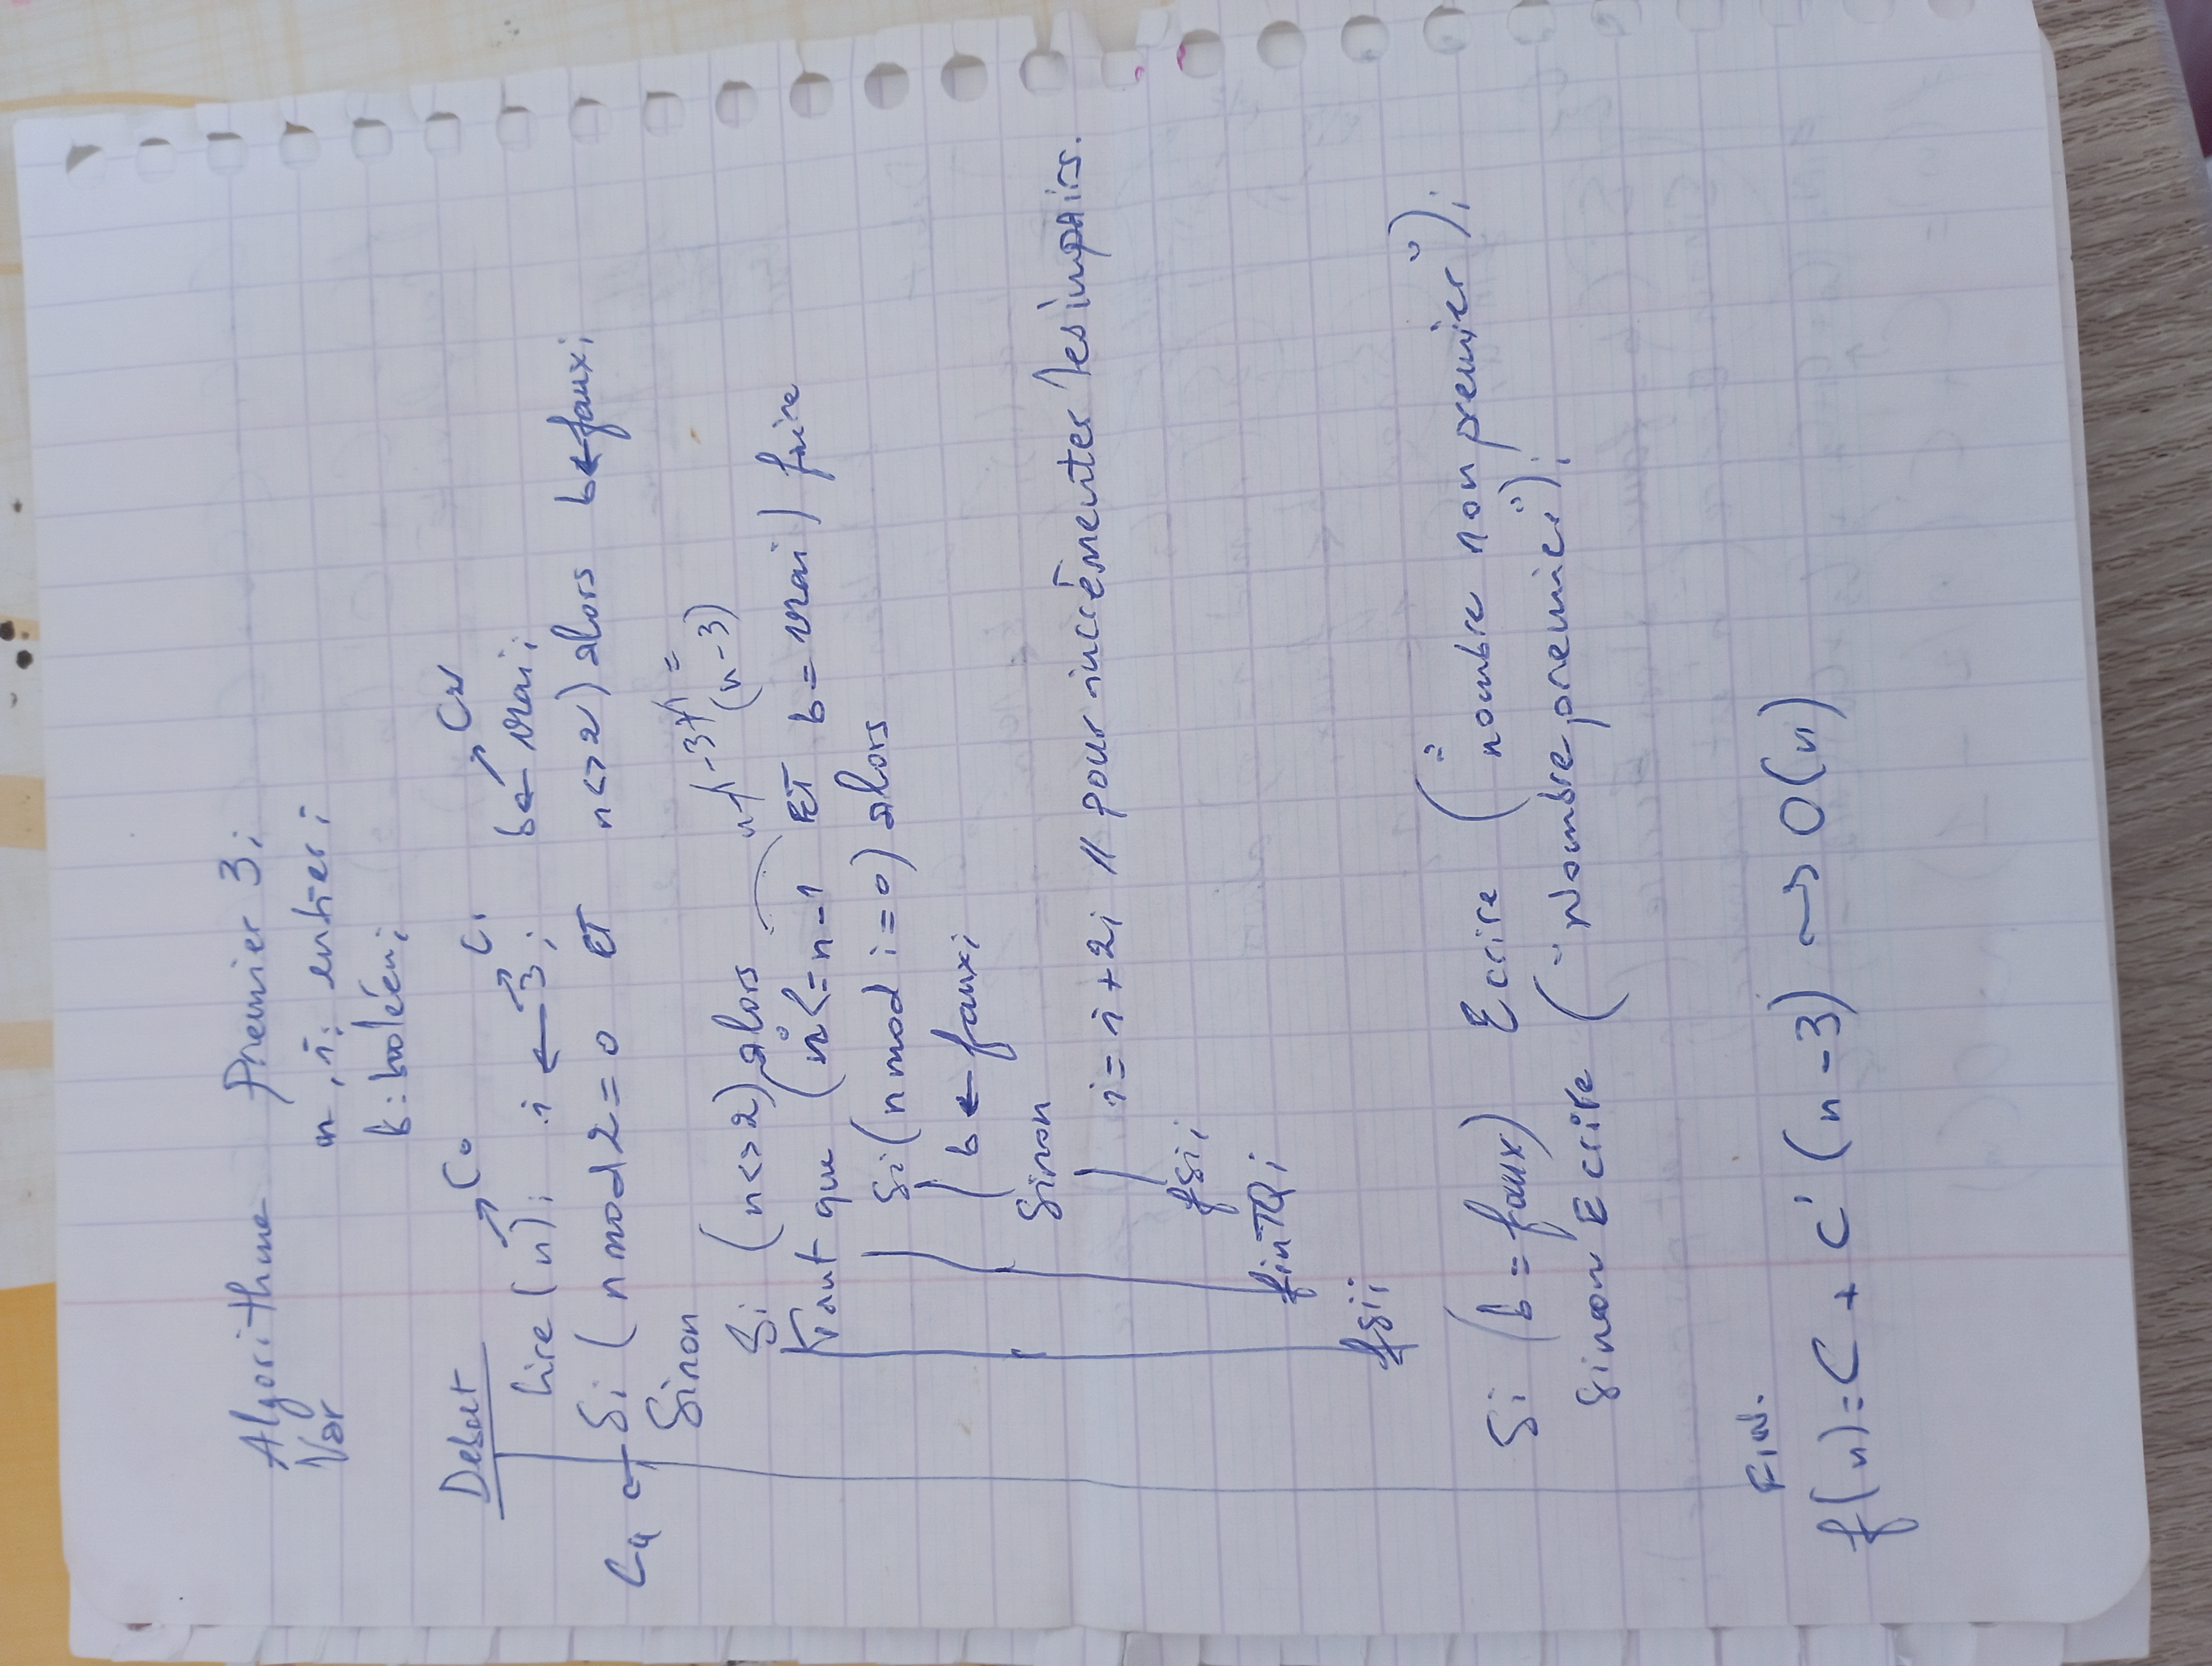 Algorithme Premier 3;
Var n, i: entier;
b: boléen;
Debut
lire(n); i ← 3; b ← vrai;
C0 C1 C2
C4 Si (n mod 2 = 0 ET n <> 2) alors b ← faux;
Sinon
Si (n <> 2) alors
n-1-3+1 = (n-3)
Tant que (i <= n-1 ET b = vrai) faire
Si (n mod i = 0) alors
b ← faux;
Sinon
i = i + 2; // pour incrémenter les impairs.
fsi;
finTQ;
fsi;
Si (b = faux) Ecrire ("nombre non premier");
Sinon Ecrire ("Nombre premier");
FIN.
f(n) = C + C' (n-3) ~> O(n)